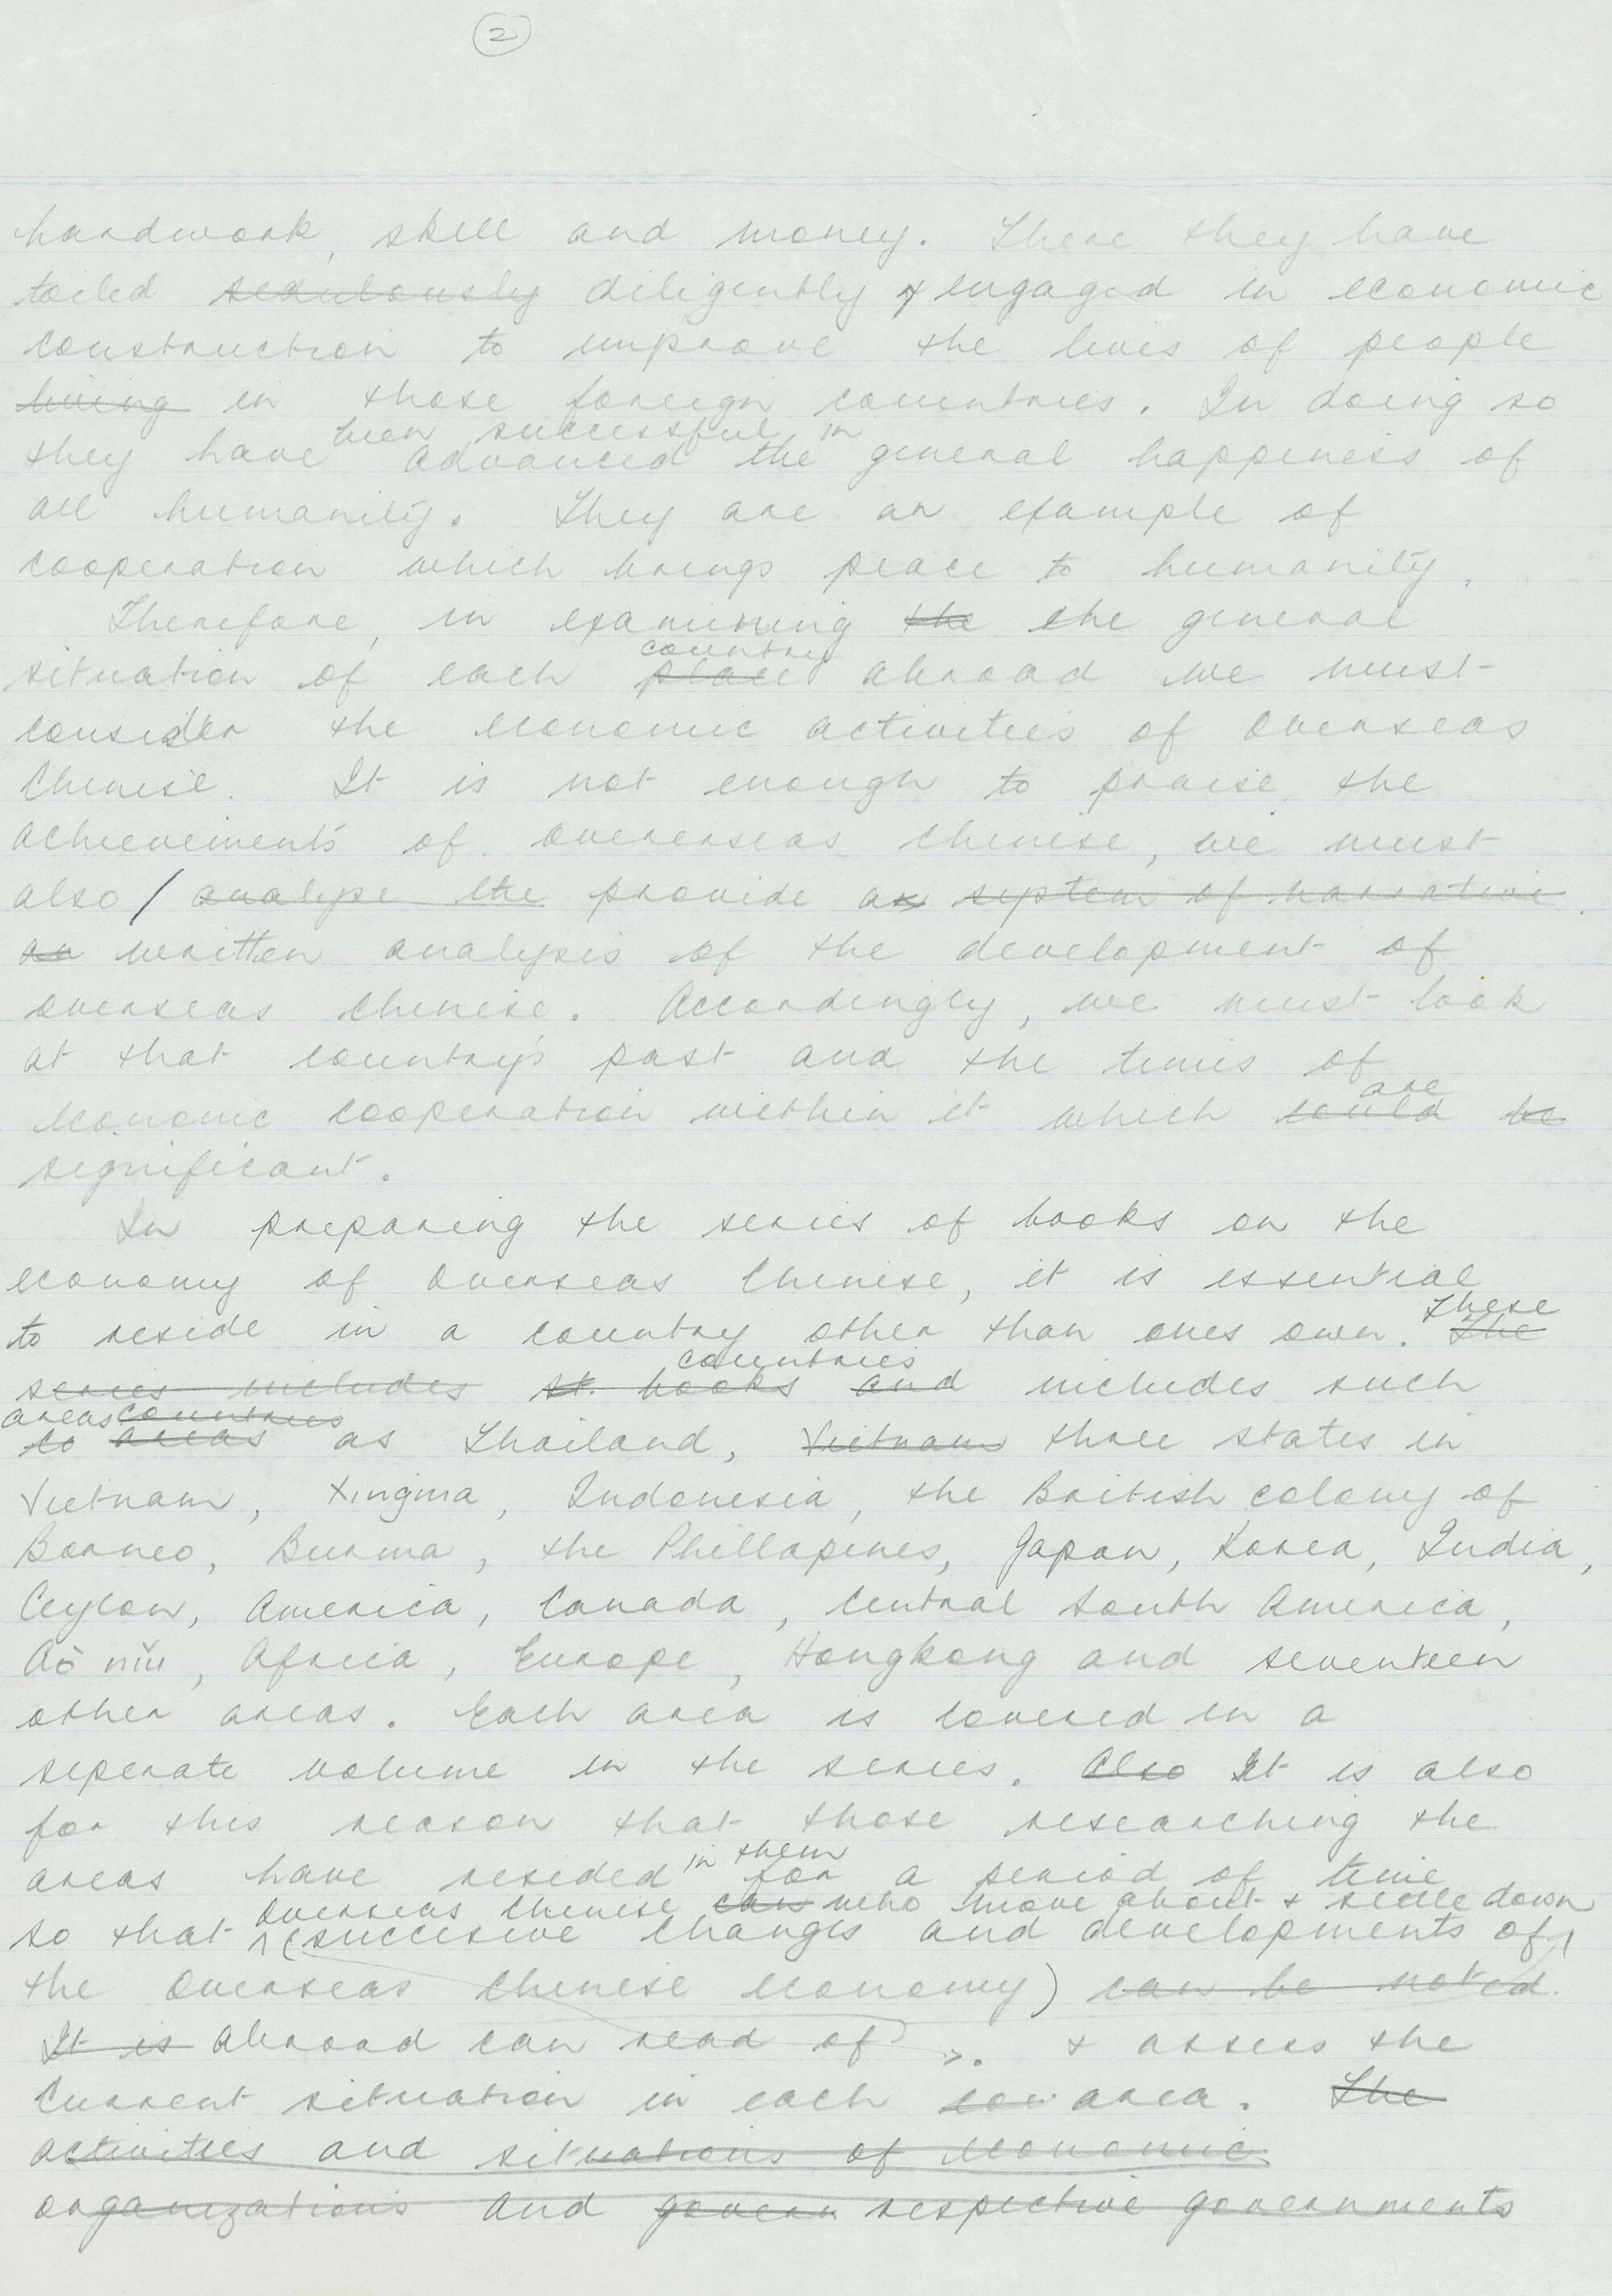 2
handwork, skill and money. There they have
toiled sedulously diligently & engaged in economic
construction to improve the lives of people
living in those foreign countries. In doing so
been successful in
they have advanced the general happiness of
all humanity. They are an example of
cooperation which brings peace to humanity.
Therefore, in examining the the general
country
situation of each place abroad we must
consider the economic activities of Overseas
Chinese. It is not enough to praise the
achievements of overerseas Chinese, we must
also / analyse the provide an system of narrative
an written analysis of the development of
overseas Chinese. Accordingly, we must look
at that country's past and the times of
are
economic cooperation within it which could be
significant.
In preparing the series of books on the
economy of Overseas Chinese, it is essential
These
to reside in a country other than ones own. The
countries
series includes st. books and includes such
areas countries
to areas as Thailand, Vietnam three states in
Vietnam, Xingma, Indonesia, the British colony of
Borneo, Burma, the Phillapines, Japan, Korea, India,
Ceylon, America, Canada, Central South America,
Aò niǔ, Africa, Europe, Hongkong and seventeen
other areas. Each area is covered in a
seperate volume in the series. Also It is also
for this reason that those researching the
in them
areas have resided for a period of time
overseas Chinese can who move about & settle down
so that (succesive changes and developments of
the Overseas Chinese economy) can be noted.
It is abroad can read of . & assess the
current situation in each cou area. The
activities and situations of economic
organizations and govern respective governments